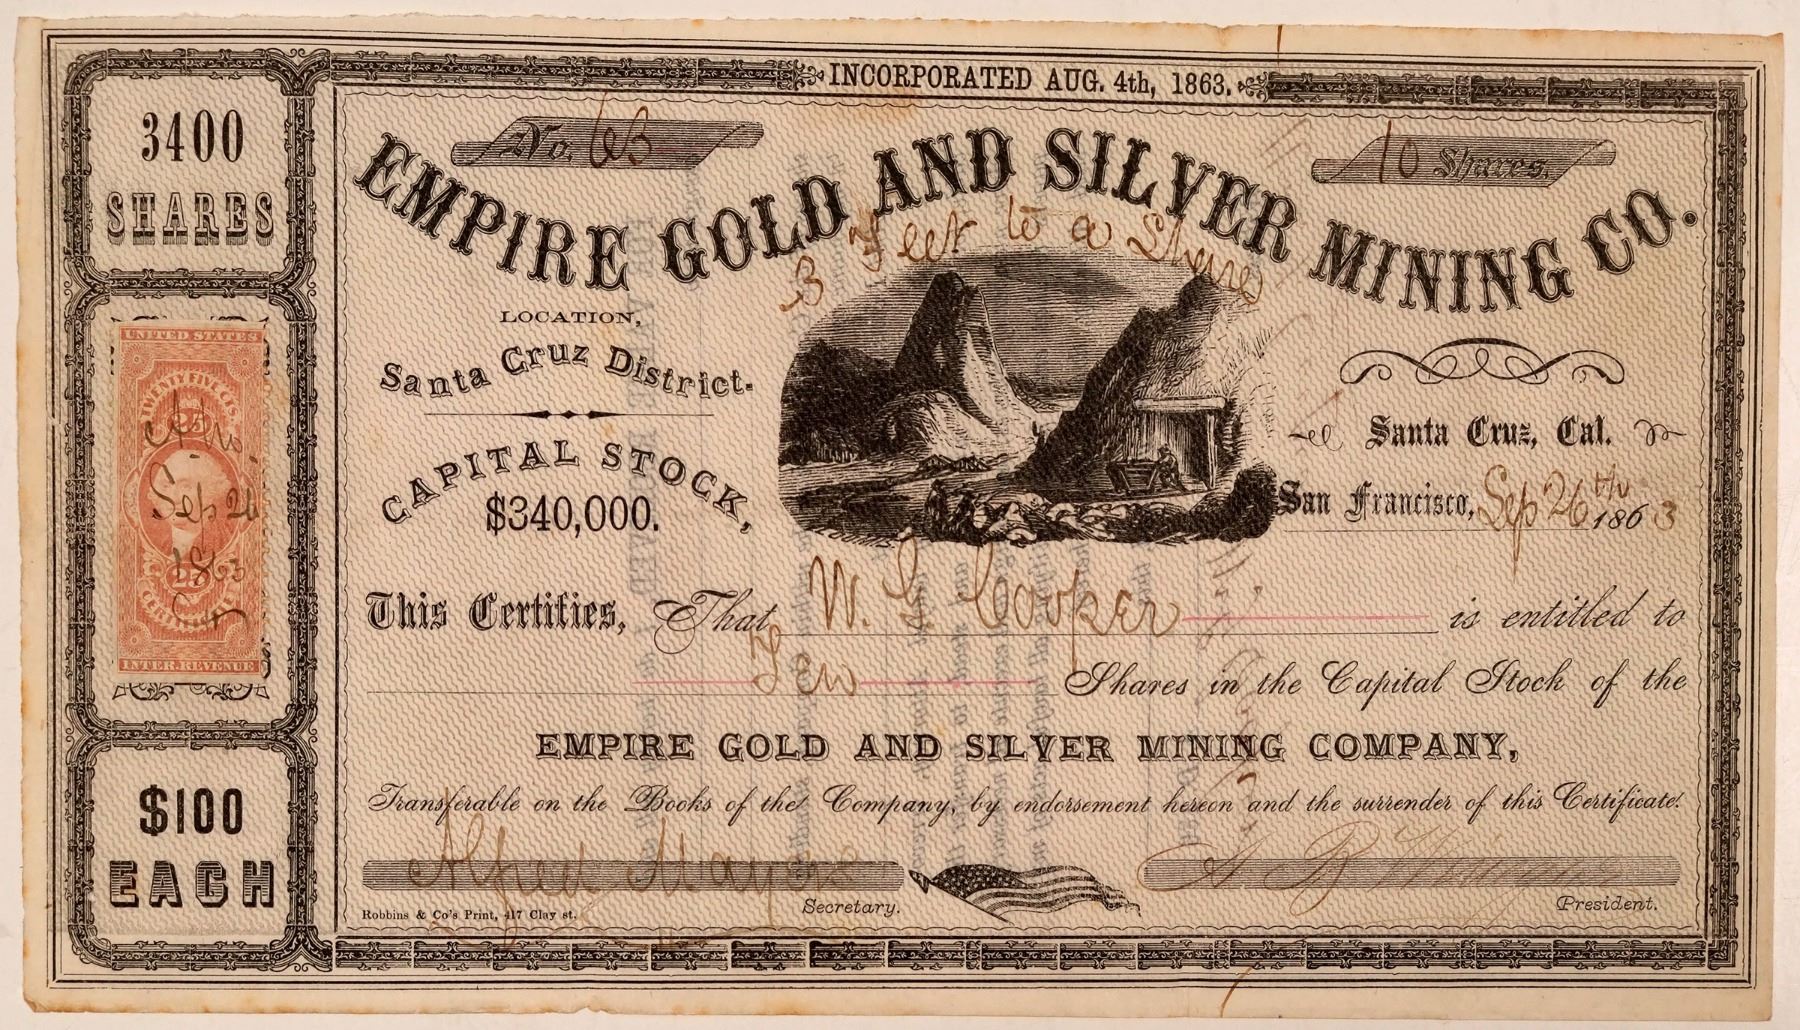 INCORPORATED AUG. 4th, 1863.
3400
SHARES
No. 63
10 Shares.
EMPIRE GOLD AND SILVER MINING CO.
3 Feet to a Share
LOCATION,
Santa Cruz District.
CAPITAL STOCK,
$340,000.
Santa Cruz, Cal.
San Francisco, Sep 26th 1863
UNITED STATES
TWENTY FIVE CTS.
25
Sep 26
1863
25
CERTIFICATE
INTER. REVENUE
This Certifies, That W. Cooper is entitled to
Ten Shares in the Capital Stock of the
EMPIRE GOLD AND SILVER MINING COMPANY,
Transferable on the Books of the Company, by endorsement hereon and the surrender of this Certificate.
$100
EACH
Alfred
Secretary.
President.
Robbins & Co's Print, 417 Clay st.